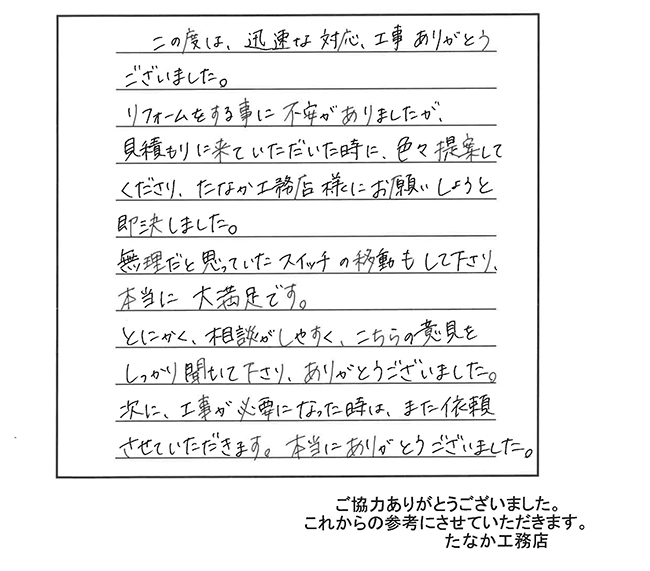 この度は、迅速な対応、工事ありがとう
ございました。
リフォームをする事に不安がありましたが、
見積もりに来ていただいた時に、色々提案して
くださり、たなか工務店様にお願いしようと
即決しました。
無理だと思っていたスイッチの移動もして下さり、
本当に大満足です。
とにかく、相談がしやすく、こちらの意見を
しっかり聞いて下さり、ありがとうございました。
次に、工事が必要になった時は、また依頼
させていただきます。本当にありがとうございました。
ご協力ありがとうございました。
これからの参考にさせていただきます。
たなか工務店